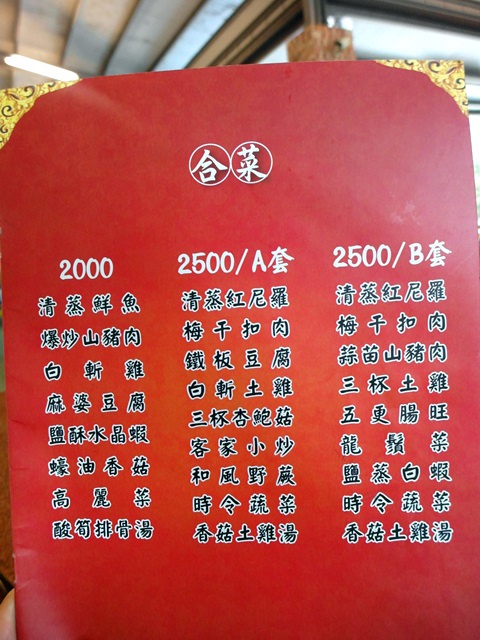 合菜
2000
清蒸鮮魚
爆炒山豬肉
白斬雞
麻婆豆腐
鹽酥水晶蝦
蠔油香菇
高麗菜
酸筍排骨湯
2500/A套
清蒸紅尼羅
梅干扣肉
鐵板豆腐
白斬土雞
三杯杏鮑菇
客家小炒
和風野蕨
時令蔬菜
香菇土雞湯
2500/B套
清蒸紅尼羅
梅干扣肉
蒜苗山豬肉
三杯土雞
五更腸旺
龍鬚菜
鹽蒸白蝦
時令蔬菜
香菇土雞湯